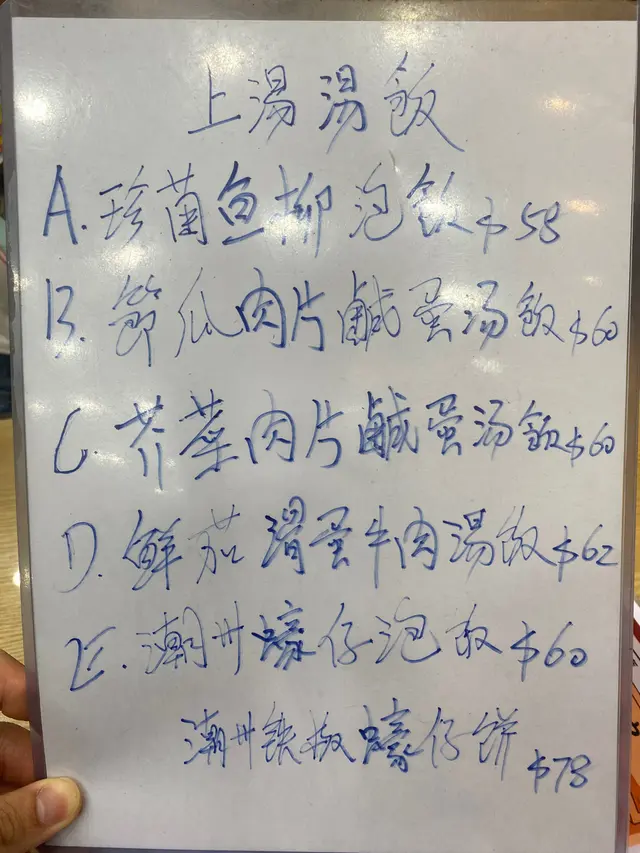 上湯湯飯
A. 珍菌鱼柳泡飯 $58
B. 節瓜肉片鹹蛋汤飯 $60
C. 芥菜肉片鹹蛋汤飯 $60
D. 鮮茄滑蛋牛肉湯飯 $62
E. 潮州蠔仔泡飯 $60
潮州鉄板蠔仔餅 $78